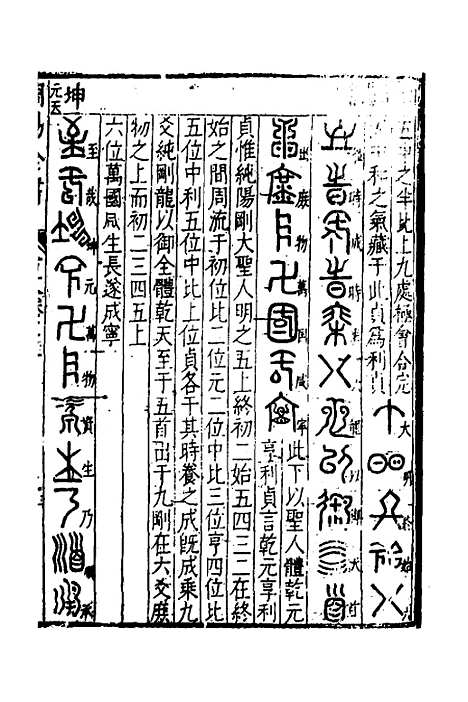 五中之半比上九處極會合定
中和之氣藏于此貞為利貞
大明終始六
位時成時乘六龍以御天首
出庶物萬國咸寧
此下以聖人體乾元
亨利貞言乾元亨利
貞惟純陽剛大聖人明之五上終初二始五四三二在終
始之間周流于初位比二位元二位中比三位亨四位比
五位中利五位中比上位貞各干其時養之成既成乘九
爻純剛龍以御全體乾天至于五首出于九剛在六爻庶
物之上而初二三四五上
六位萬國咸生長遂成寧
坤
元天
至哉坤元萬物資生乃順承